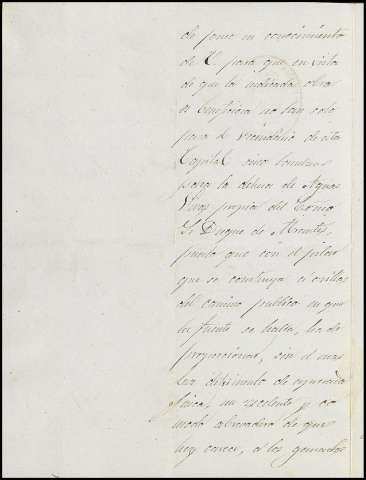 de poner en conocimiento
de V. para que en vista
de que la indicada obra
es beneficiosa no tan solo
para el vecindario de esta
Capital sino tambien
para la dehesa de Aguas
Vivas propia del Excmo
Sr Duque de
puesto que con el pilar
que se construya a orillas
del camino publico en que
la fuente se halla, ha de
proporcionar, sin el mas
leve detrimento de aquella
finca, un escelente y co
modo abrevadero de que
hoy carece, á los ganados